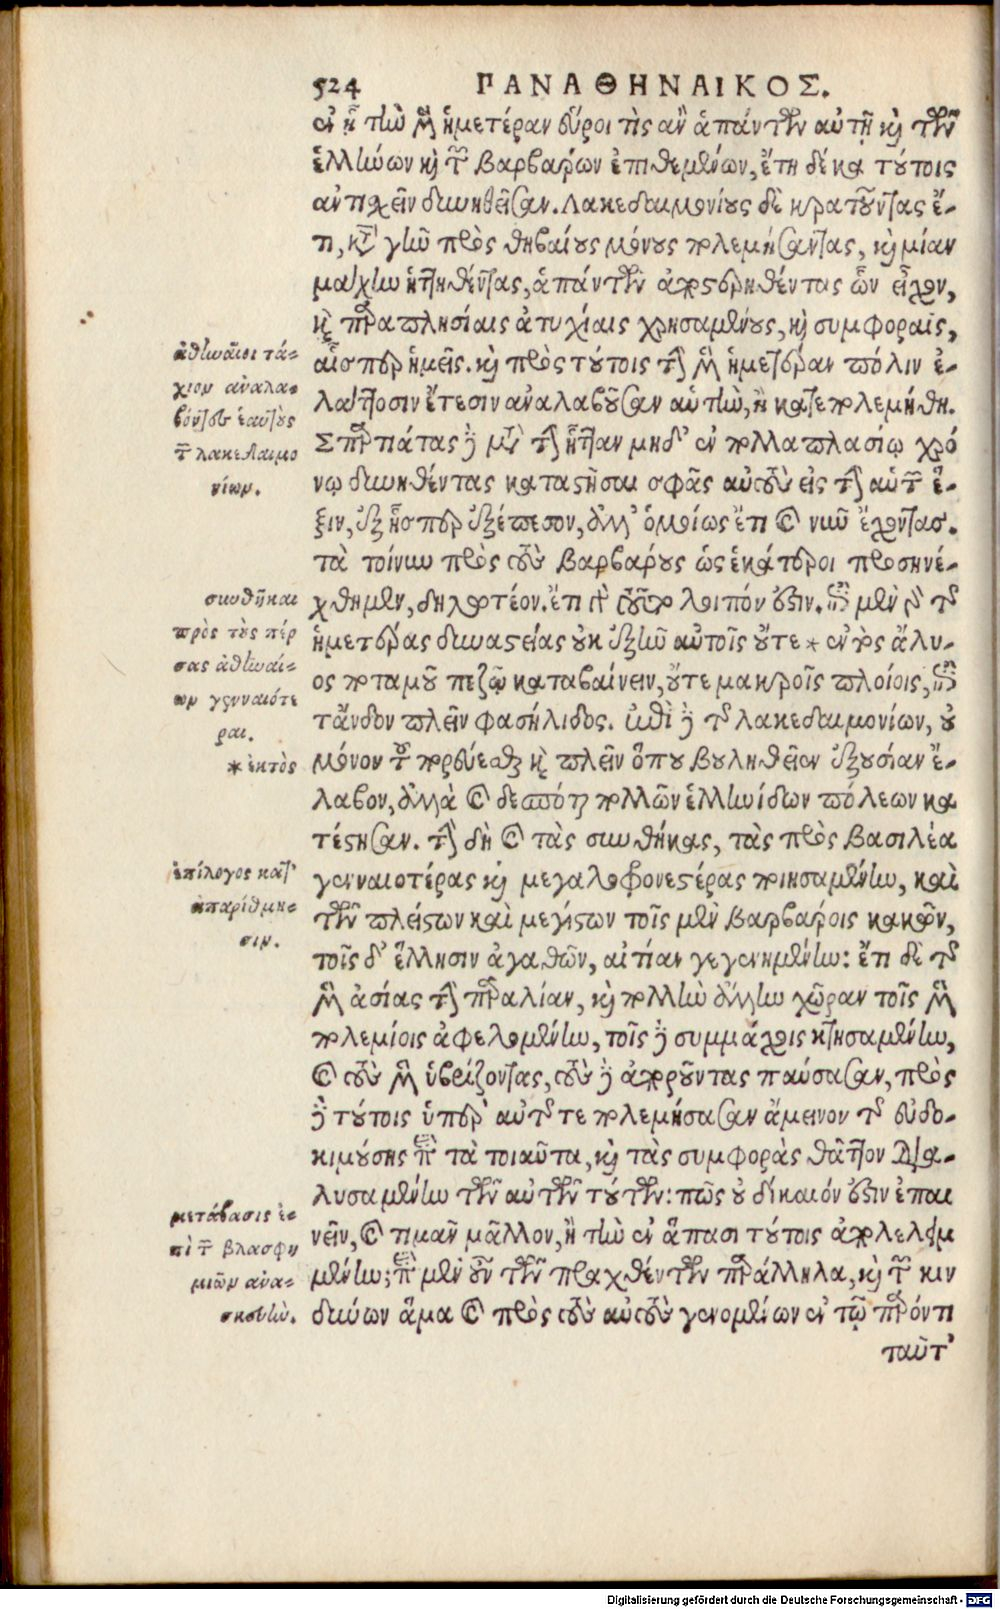 524 ΠΑΝΑΘΗΝΑΙΚΟΣ.
ἐν ᾗ τὴν μὲν ἡμετέραν εὕροι τὶς ἂν ἁπάντων αὐτῇ καὶ τῶν
ἑλλήνων καὶ τῶν βαρβάρων ἐπιθεμένων, ἔτη δέκα τούτοις
ἀντισχεῖν δυνηθεῖσαν. Λακεδαιμονίους δὲ κρατοῦντας ἔ-
τι, κατὰ γῆν πρὸς θηβαίους μόνους πολεμήσαντας, καὶ μίαν
μάχην ἡττηθέντας, ἁπάντων ἀποστερηθέντας ὧν εἶχον,
καὶ παραπλησίαις ἀτυχίαις χρησαμένους, καὶ συμφοραῖς,
αἷσπερ ἡμεῖς. καὶ πρὸς τούτοις τὴν μὲν ἡμετέραν πόλιν ἐ-
λάττοσιν ἔτεσιν ἀναλαβοῦσαν αὑτὴν, ἢ κατεπολεμήθη.
Σπαρτιάτας δὲ μετὰ τὴν ἧτταν μηδ' ἐν πολλαπλασίῳ χρό
νῳ δυνηθέντας καταστῆσαι σφᾶς αὐτοὺς εἰς τὴν αὐτὴν ἕ-
ξιν, ἐξ ἧσπερ ἐξέπεσον, ἀλλ' ὁμοίως ἔτι καὶ νῦν ἔχοντας.
τὰ τοίνυν πρὸς τοὺς βαρβάρους ὡς ἑκάτεροι προσηνέ-
χθημεν, δηλωτέον. ἔτι γὰρ τοῦτο λοιπόν ἐστιν. ἐπὶ μὲν γὰρ τῆς
ἡμετέρας δυναστείας οὐκ ἐξῆν αὐτοῖς οὔτε * ἐντὸς ἅλυ-
ος ποταμοῦ πεζῷ καταβαίνειν, οὔτε μακροῖς πλοίοις, ἐπὶ
τάνδον πλεῖν φασήλιδος. ἐπὶ δὲ τῆς λακεδαιμονίων, οὐ
μόνον τοῦ πορεύεσθαι καὶ πλεῖν ὅπου βουληθεῖεν ἐξουσίαν ἔ-
λαβον, ἀλλὰ καὶ δεσπόται πολλῶν ἑλληνίδων πόλεων κα
τέστησαν. τὴν δὴ καὶ τὰς συνθήκας, τὰς πρὸς βασιλέα
γενναιοτέρας καὶ μεγαλοφρονεστέρας ποιησαμένην, καὶ
τῶν πλείστων καὶ μεγίστων τοῖς μὲν βαρβάροις κακῶν,
τοῖς δ' ἕλλησιν ἀγαθῶν, αἰτίαν γεγενημένην: ἔτι δὲ τῆς
μὲν ἀσίας τὴν παραλίαν, καὶ πολλὴν ἄλλην χῶραν τοῖς μὲν
πολεμίοις ἀφελομένην, τοῖς δὲ συμμάχοις κτησαμένην,
καὶ τοὺς μὲν ὑβρίζοντας, τοὺς δὲ ἀποροῦντας παύσασαν, πρὸς
δὲ τούτοις ὑπὲρ αὑτῆς τε πολεμήσασαν ἄμεινον τῆς εὐδο-
κιμούσης περὶ τὰ τοιαῦτα, καὶ τὰς συμφορὰς θᾶττον δια-
λυσαμένην τῶν αὐτῶν τούτων: πῶς οὐ δίκαιόν ἐστιν ἐπαι
νεῖν, καὶ τιμᾶν μᾶλλον, ἢ τὴν ἐν ἅπασι τούτοις ἀπολελειμ
μένην; περὶ μὲν οὖν τῶν πραχθέντων παράλληλα, καὶ τῶν κιν
δύνων ἅμα καὶ πρὸς τοὺς αὐτοὺς γενομένων ἐν τῷ παρόντι
ταῦτ'
ἀθηναῖοι τά-
χιον ἀναλα-
βόντες ἑαυτοὺς
τῶν λακεδαιμο
νίων.
συνθῆκαι
πρὸς τοὺς πέρ
σας ἀθηναί-
ων γενναιότε
ραι.
* ἐκτὸς
ἐπίλογος κατ'
ἀπαρίθμη-
σιν.
μετάβασις ἐ-
πὶ τῶν βλασφη
μιῶν ἀνα-
σκευὴν.
Digitalisierung gefördert durch die Deutsche Forschungsgemeinschaft - DFG